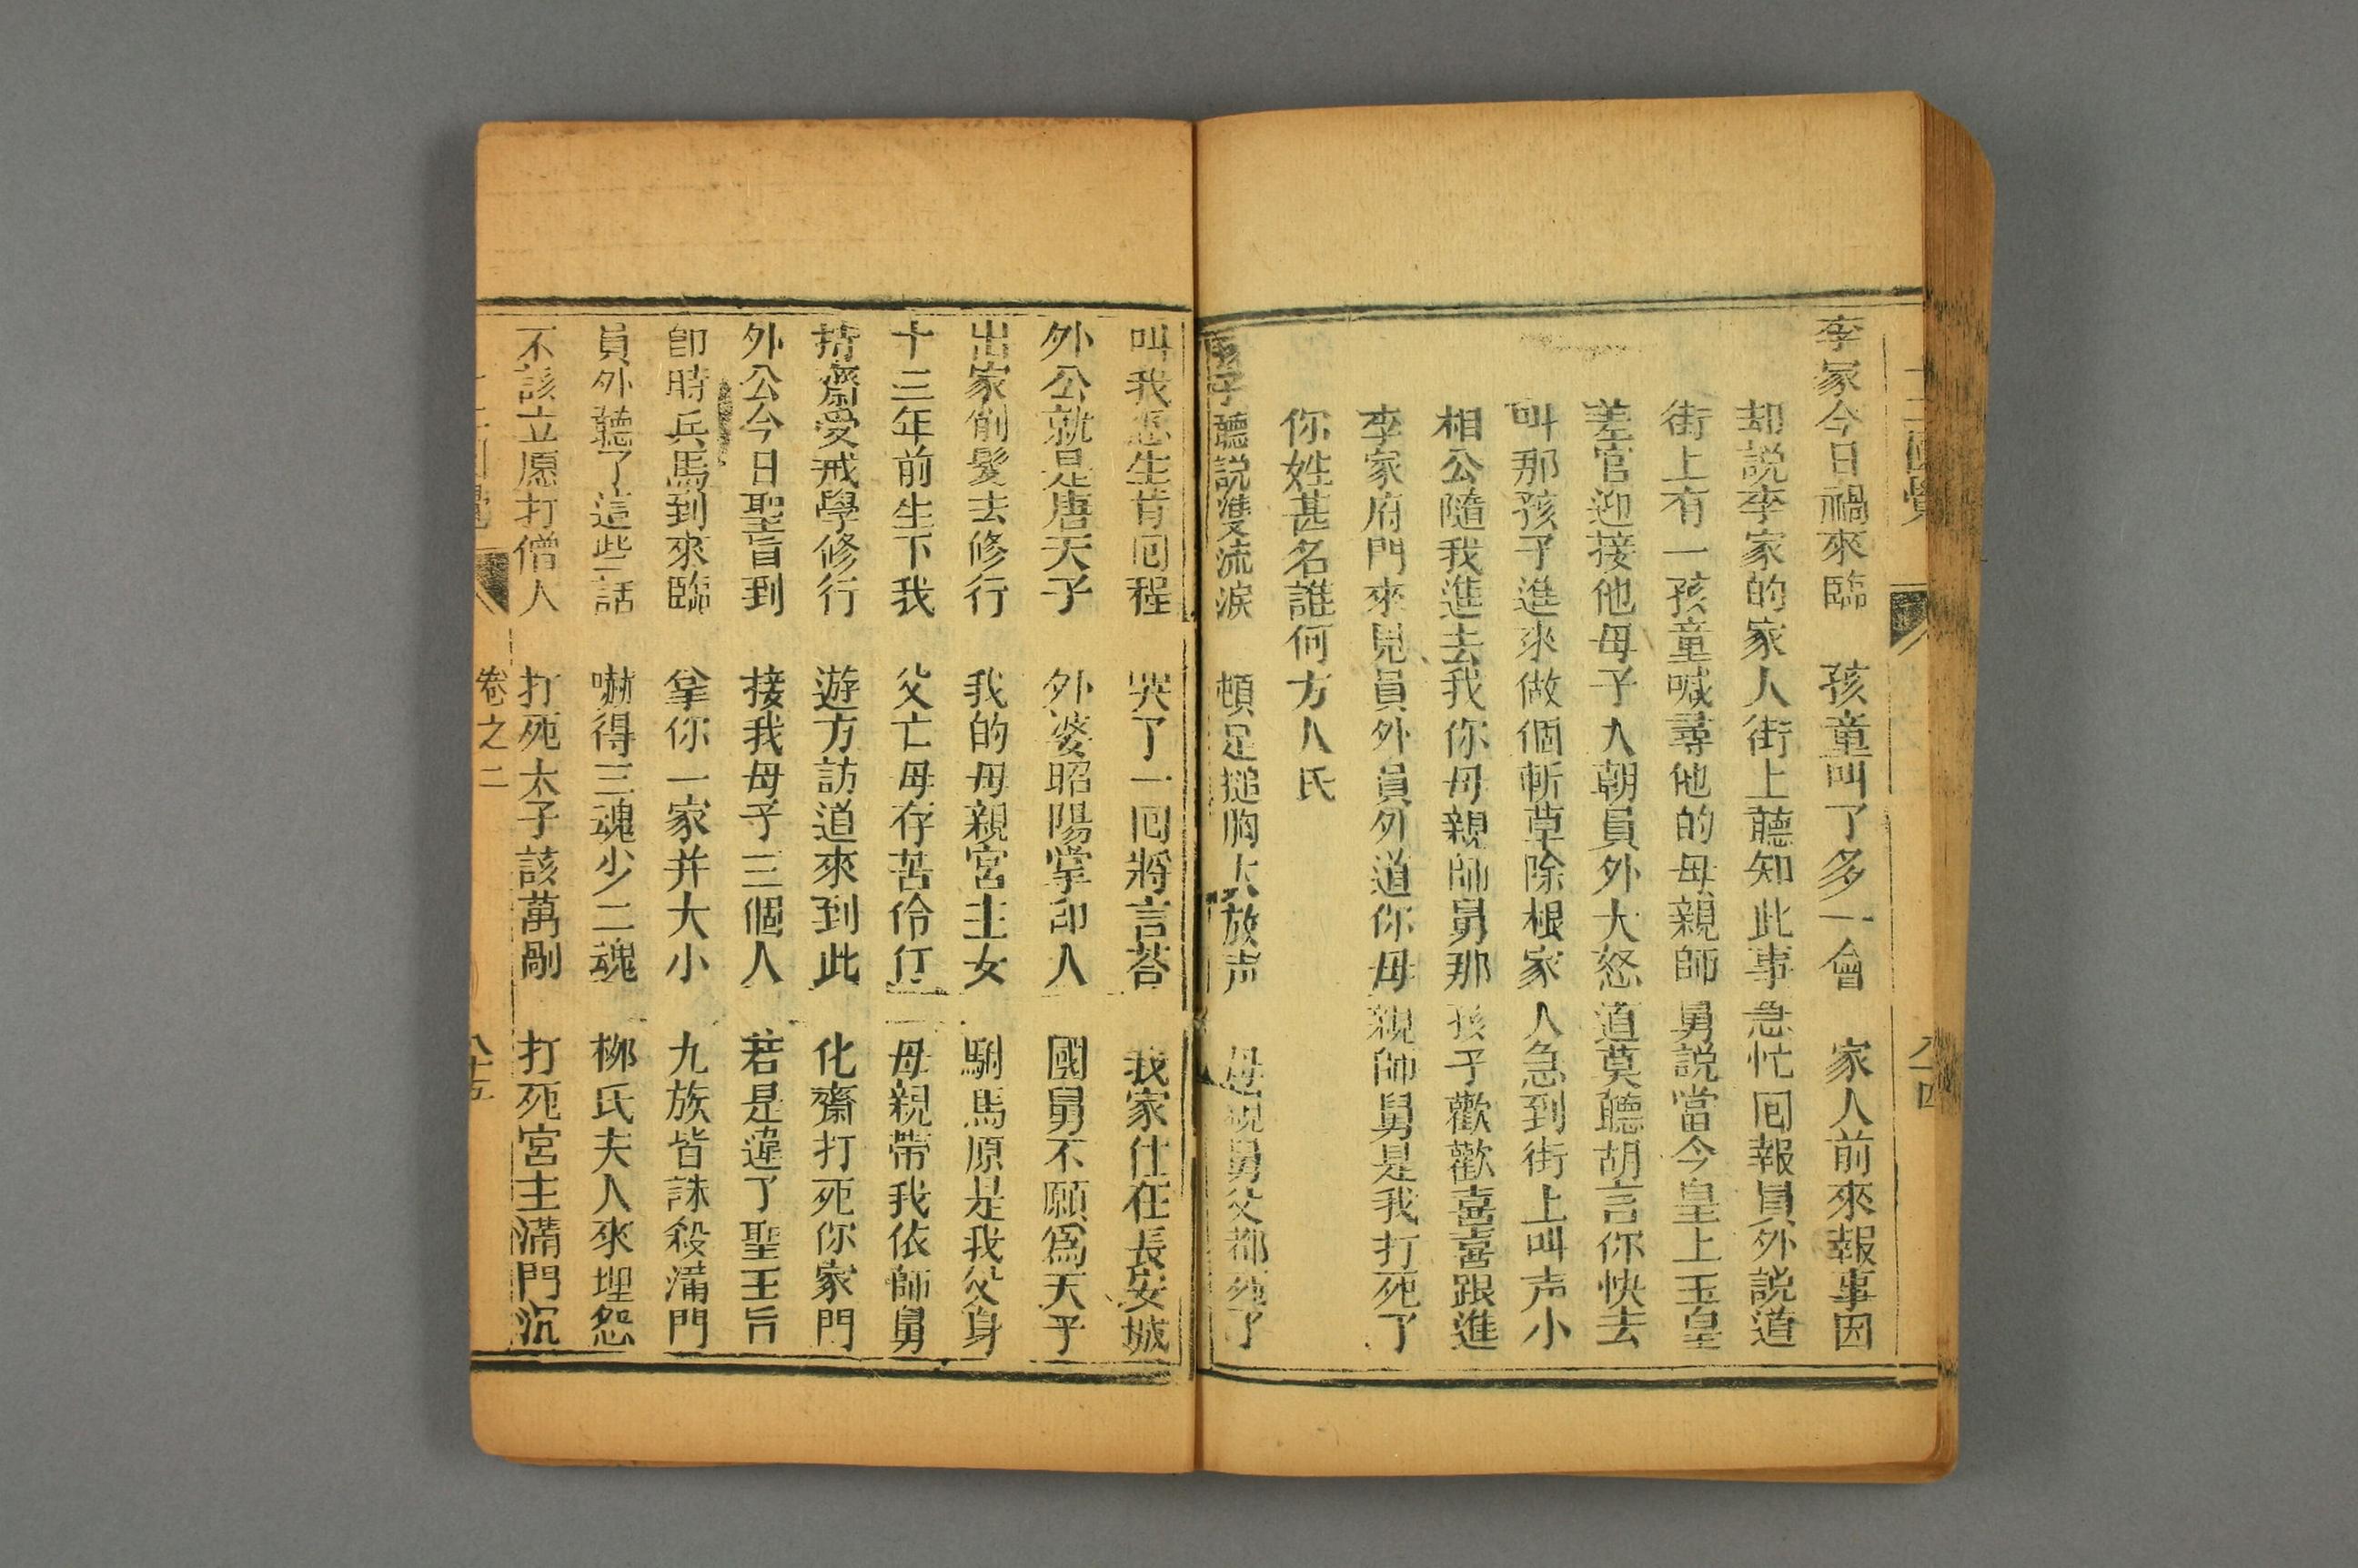 李家今日禍來臨　孩童叫了多一會　家人前來報事因
却説李家的家人街上聽知此事急忙囘報員外説道
街上有一孩童喊尋他的母親師舅説當今皇上玉皇
差官迎接他母子入朝員外大怒道莫聽胡言你快去
叫那孩子進來做個斬草除根家人急到街上叫声小
相公隨我進去我你母親師舅那孩子歡歡喜喜跟進
李家府門來見員外員外道你母親師舅是我打死了
你姓甚名誰何方人氏
孩子聽説雙流淚　頓足搥胸大放声　母親舅父都死了
叫我怎生肯囘程　哭了一囘將言荅　我家住在長安城
外公就是唐天子　外婆昭陽掌印人　國舅不願為天子
出家削髮去修行　我的母親宮主女　駙馬原是我父身
十三年前生下我　父亡母存苦伶仃　母親帶我依師舅
持齋受戒學修行　遊方訪道來到此　化齋打死你家門
外公今日聖旨到　接我母子三個人　若是違了聖王旨
卽時兵馬到來臨　拿你一家并大小　九族皆誅殺滿門
員外聽了這些話　嚇得三魂少二魂　栁氏夫人來埋怨
不該立愿打僧人　打死太子該萬剮　打死宮主滿門沉
卷之二
八十五